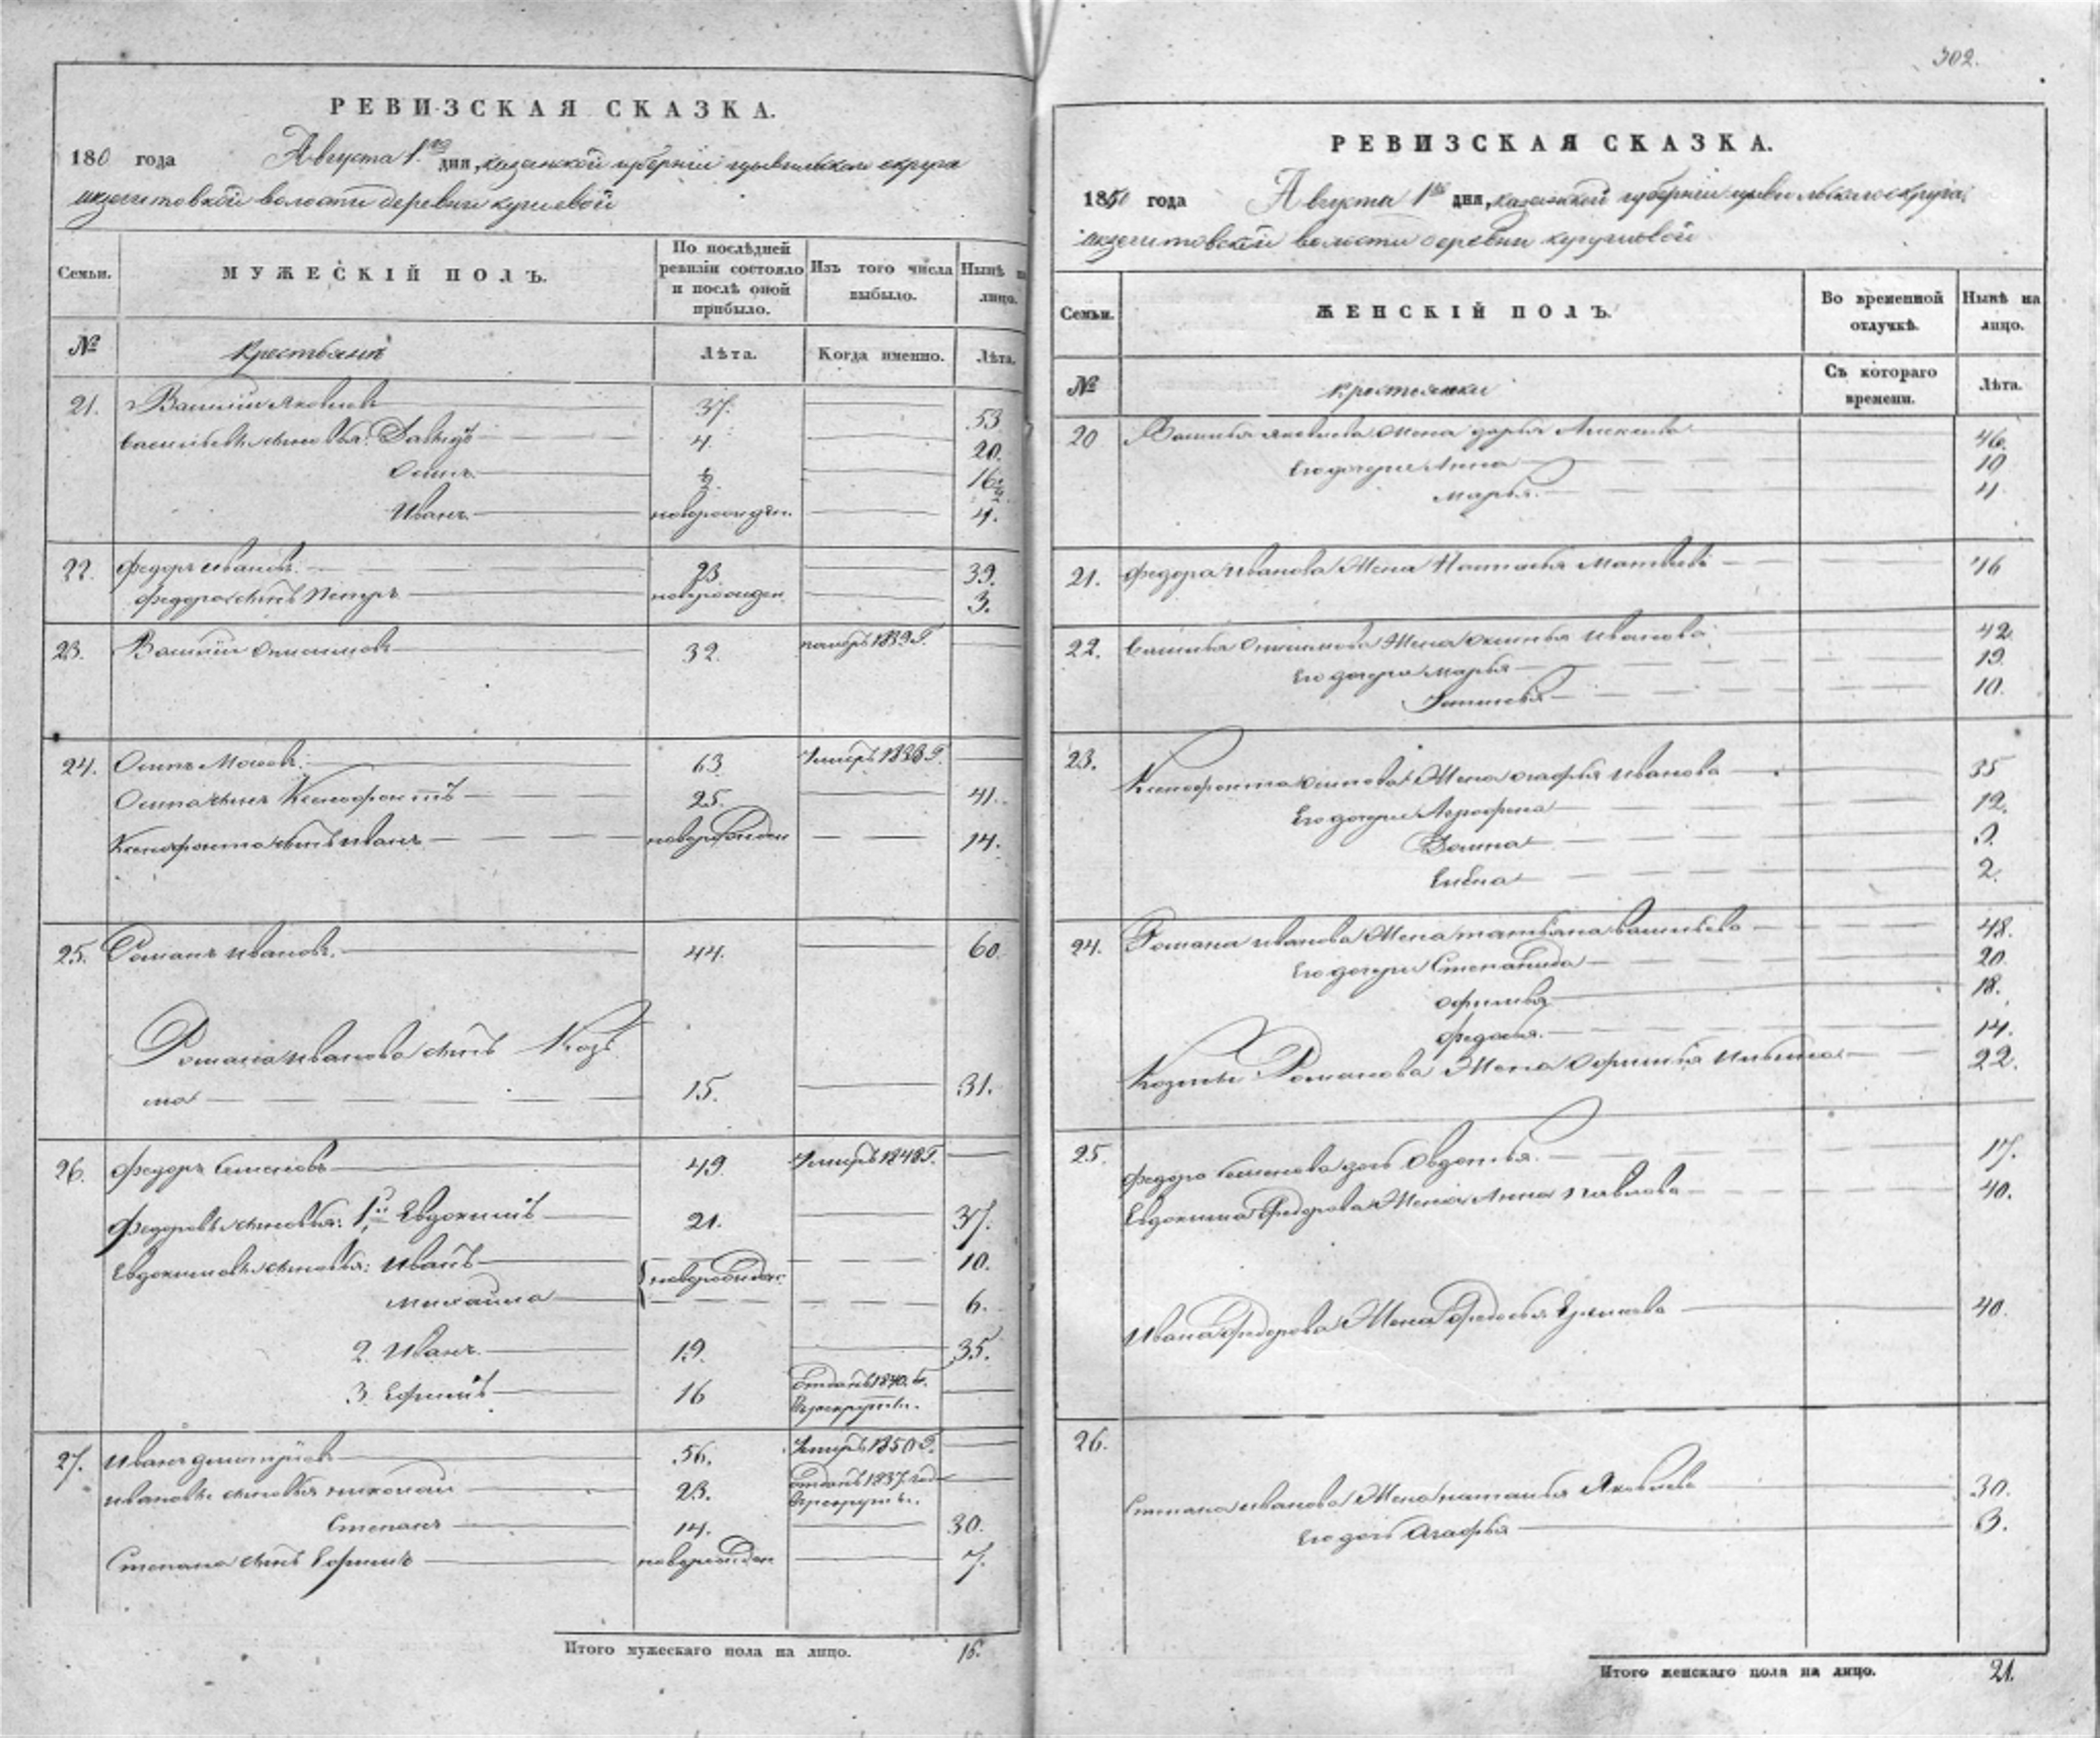 РЕВИЗСКАЯ СКАЗКА.
180 года Августа 1го дня, казанской губернiи цывильскаго округа
волости деревни
Семьи. МУЖЕСКIЙ ПОЛЪ. По послѣдней ревизiи состояло и послѣ оной прибыло. Изъ того числа выбыло. Нынѣ на лицо.
№ Крестьяне Лѣта. Когда именно. Лѣта.
21. Василiй Яковлевъ 37. 53
Васильевы сыновья: Давыдъ 4. 20.
Осипъ ½. 16½
Иванъ новорожден. 4.
22. Федоръ Ивановъ. 23. 39.
Федора сынъ Петръ новорожден 3.
23. Василiй Онисимовъ 32. померъ 1839 Г.
24. Осипъ Мосеевъ. 63. Умеръ 1838 Г.
Осипа сынъ Ксенофонтъ 25. 41.
Ксенофонта сынъ Иванъ новорожден 14.
25. Романъ Ивановъ. 44. 60.
Романа Иванова сынъ Козь
ма 15. 31.
26. Федоръ Семеновъ 49. Умеръ 1848 Г.
Федоровы сыновья: 1й Евдокимъ 21. 37.
Евдокимовы сыновья: Иванъ новорожден: 10.
Михайла 6.
2. Иванъ. 19. 35.
3. Ефимъ 16 Отданъ 1840. г.
въ рекруты.
27. Иванъ Дмитрiевъ 56. Умеръ 1850 Г.
Ивановы сыновья Николай 23. Отданъ 1837. год
въ рекруты.
Степанъ 14. 30.
Степана сынъ Ефимъ новорожден 7.
Итого мужескаго пола на лицо. 16.
302.
РЕВИЗСКАЯ СКАЗКА.
1850 года Августа 1го дня, казанской губернiи цывильскаго округа,
волости деревни
Семьи. ЖЕНСКIЙ ПОЛЪ. Во временной отлучкѣ. Нынѣ на лицо.
№ крестьянки Съ котораго времени. Лѣта.
20 Василья Яковлева Жена Дарья Алексеева 46.
Его дочери Анна 10
Марья. 4
21. Федора Иванова Жена Наталья Матвеева 46
22. Василья Онисимова Жена Иванова 42
Его дочери Марья 19.
10.
23. Ксенофонта Осипова Жена Агафья Иванова 35
Его дочери Аграфена 12.
3.
Елена 2.
24. Романа Иванова Жена Татьяна Васильева 48.
Его дочери Степанида 20.
Офимья 18.
Федосья. 14.
Козьмы Романова Жена Офимья Ильина 22.
25. Федора Семенова дочь Овдотья. 17.
Евдокима Федорова Жена Анна Павлова 40.
Ивана Федорова Жена Федосья 40.
26. Степана Иванова Жена Наталья Яковлева 30.
Его дочь Агафья 3.
Итого женскаго пола на лицо. 21.